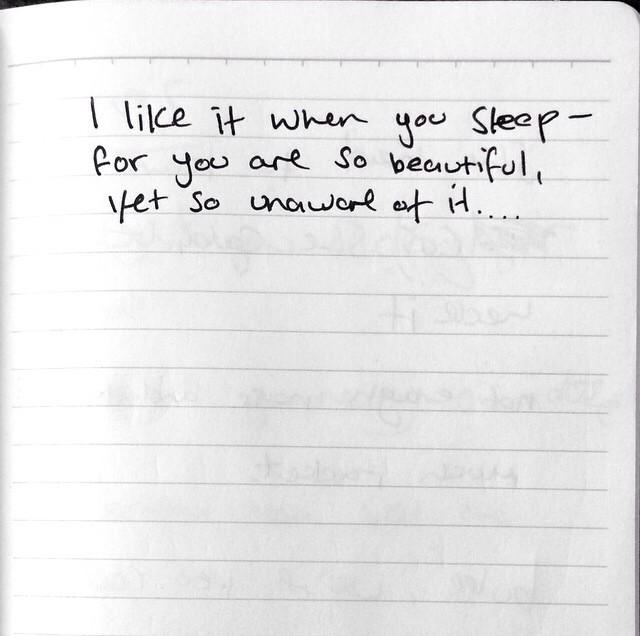 I like it when you sleep –
for you are so beautiful,
yet so unaware of it....